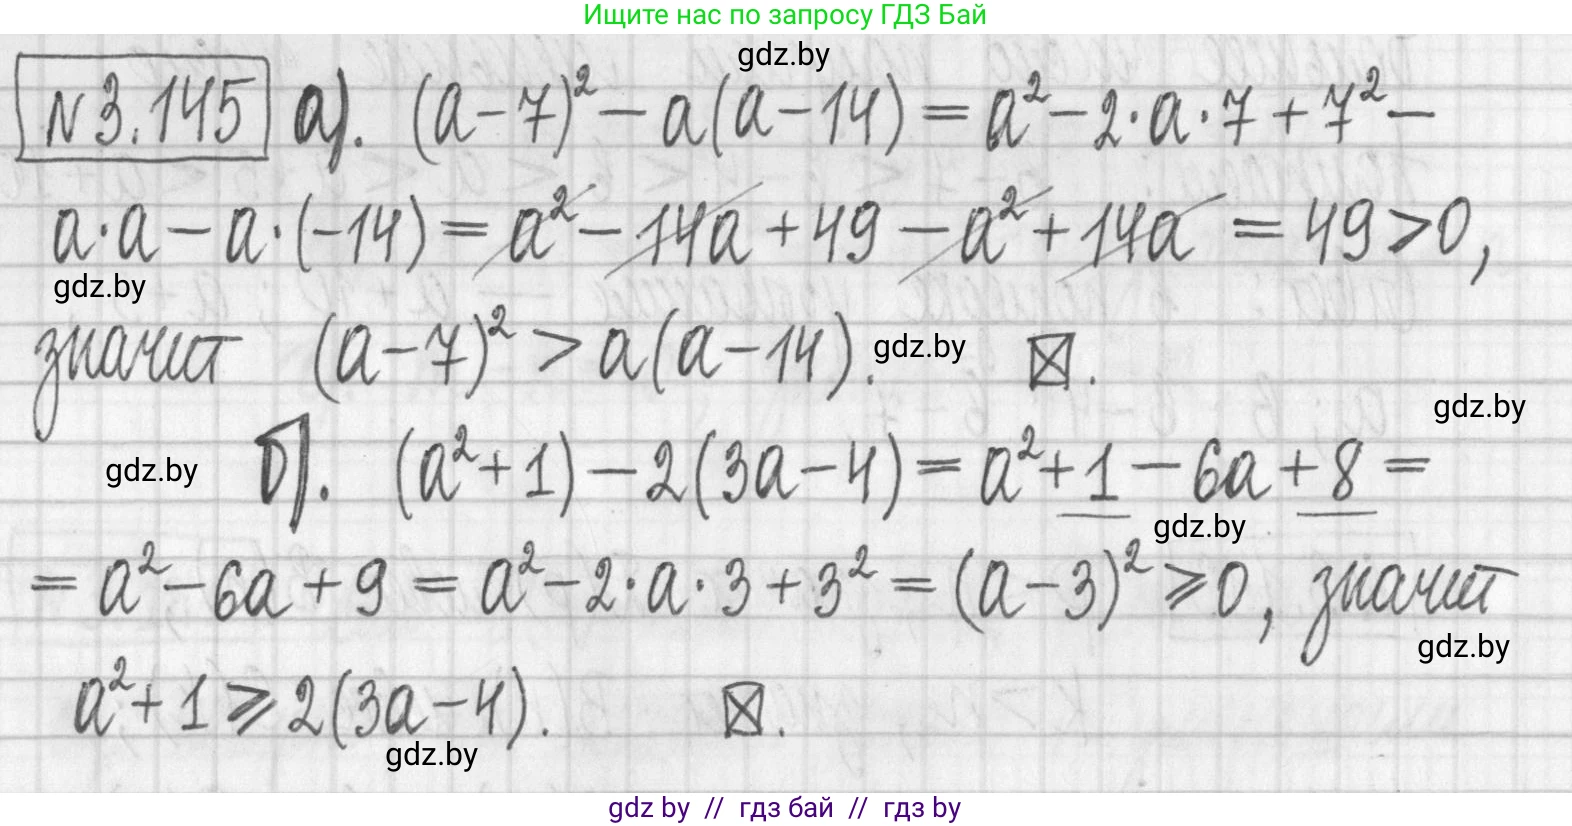 Ищите нас по запросу ГДЗ Бай
gdz.by
№3.145 а). (a-7)² - a(a-14) = a² - 2·a·7 + 7² -
a·a - a·(-14) = a² - 14a + 49 - a² + 14a = 49 > 0,
gdz.by
значит (a-7)² > a(a-14). ⊠.
gdz.by
gdz.by
gdz.by
б). (a²+1) - 2(3a-4) = a² + 1 - 6a + 8 =
gdz.by
= a² - 6a + 9 = a² - 2·a·3 + 3² = (a-3)² ⩾ 0, значит
gdz.by
a² + 1 ⩾ 2(3a-4). ⊠.
gdz.by
gdz by // гдз бай // гдз by